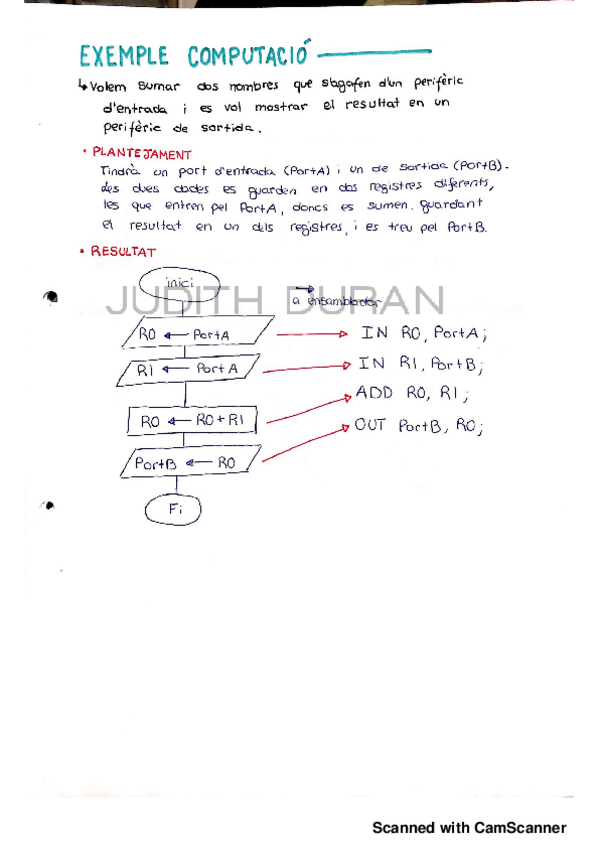 EXEMPLE COMPUTACIÓ
↳ Volem sumar dos nombres que s'agafen d'un perifèric
d'entrada i es vol mostrar el resultat en un
perifèric de sortida.
• PLANTEJAMENT
Tindrà un port d'entrada (PortA) i un de sortida (PortB).
des dues dades es guarden en dos registres diferents,
les que entren pel PortA, doncs es sumen. guardant
el resultat en un dels registres, i es treu pel PortB.
• RESULTAT
inici
a ensamblador
JUDITH DURAN
R0 ← PortA → IN R0, PortA;
R1 ← PortA → IN R1, PortB;
R0 ← R0 + R1 → ADD R0, R1;
PortB ← R0 → OUT PortB, R0;
Fi
Scanned with CamScanner